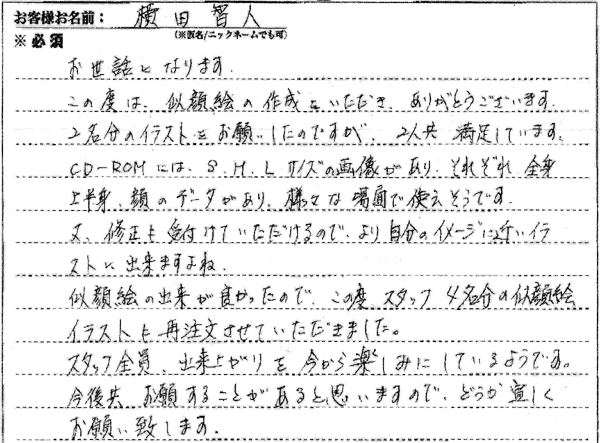 お客様お名前： 横田智人
※必須 （※仮名/ニックネームでも可）
お世話になります。
この度は、似顔絵の作成をいただき、ありがとうございます。
2名分のイラストをお願いしたのですが、2人共満足しています。
CD-ROMには、S、M、Lサイズの画像があり、それぞれ全身
上半身、顔のデータがあり、様々な場面で使えそうです。
又、修正も受付けていただけるので、より自分のイメージに近いイラ
ストに出来ますよね。
似顔絵の出来が良かったので、この度スタッフ4名分の似顔絵
イラストも再注文させていただきました。
スタッフ全員、出来上がりを今から楽しみにしているようです。
今後共お願することがあると思いますので、どうか宜しく
お願い致します。